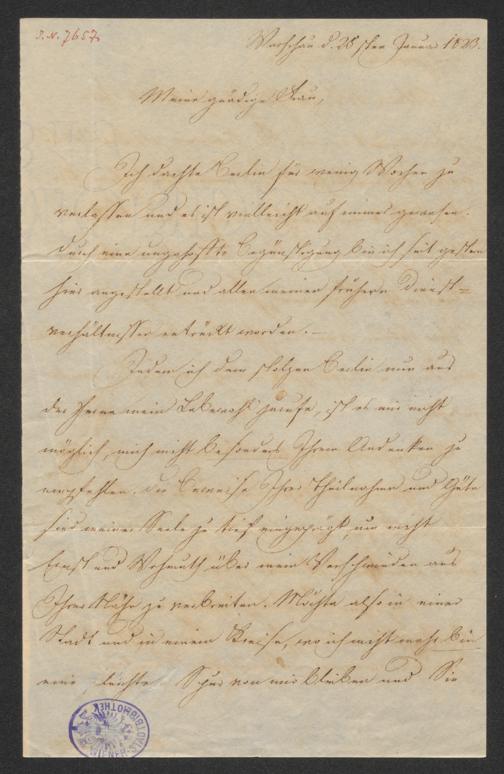 I.N. 7657.
Warschau d. 28sten Januar 1823.
Meine gnädige Frau,
Ich dachte Berlin für wenig Wochen zu
verlassen und es ist vielleicht auf immer gewesen.
Durch eine ungehoffte Begünstigung bin ich seit gestern
hier angestellt und allen meinen frühern Dienst-
verhältnissen entrückt worden. –
Indem ich dem stolzen Berlin nun aus
der Ferne mein Lebewohl zurufe, ist es mir nicht
möglich, mich nicht besonders Ihrem Andenken zu
empfehlen. Die Beweise Ihrer Theilnahme und Güte
sind meiner Seele zu tief eingeprägt, um nicht
Ernst und Wehmuth über mein Verschwinden aus
Ihrer Nähe zu verbreiten. Möchte also in einer
Stadt und in einem Kreise, wo ich nicht mehr bin
eine leichte Spur von mir bleiben und Sie
BIBLIOTHEK